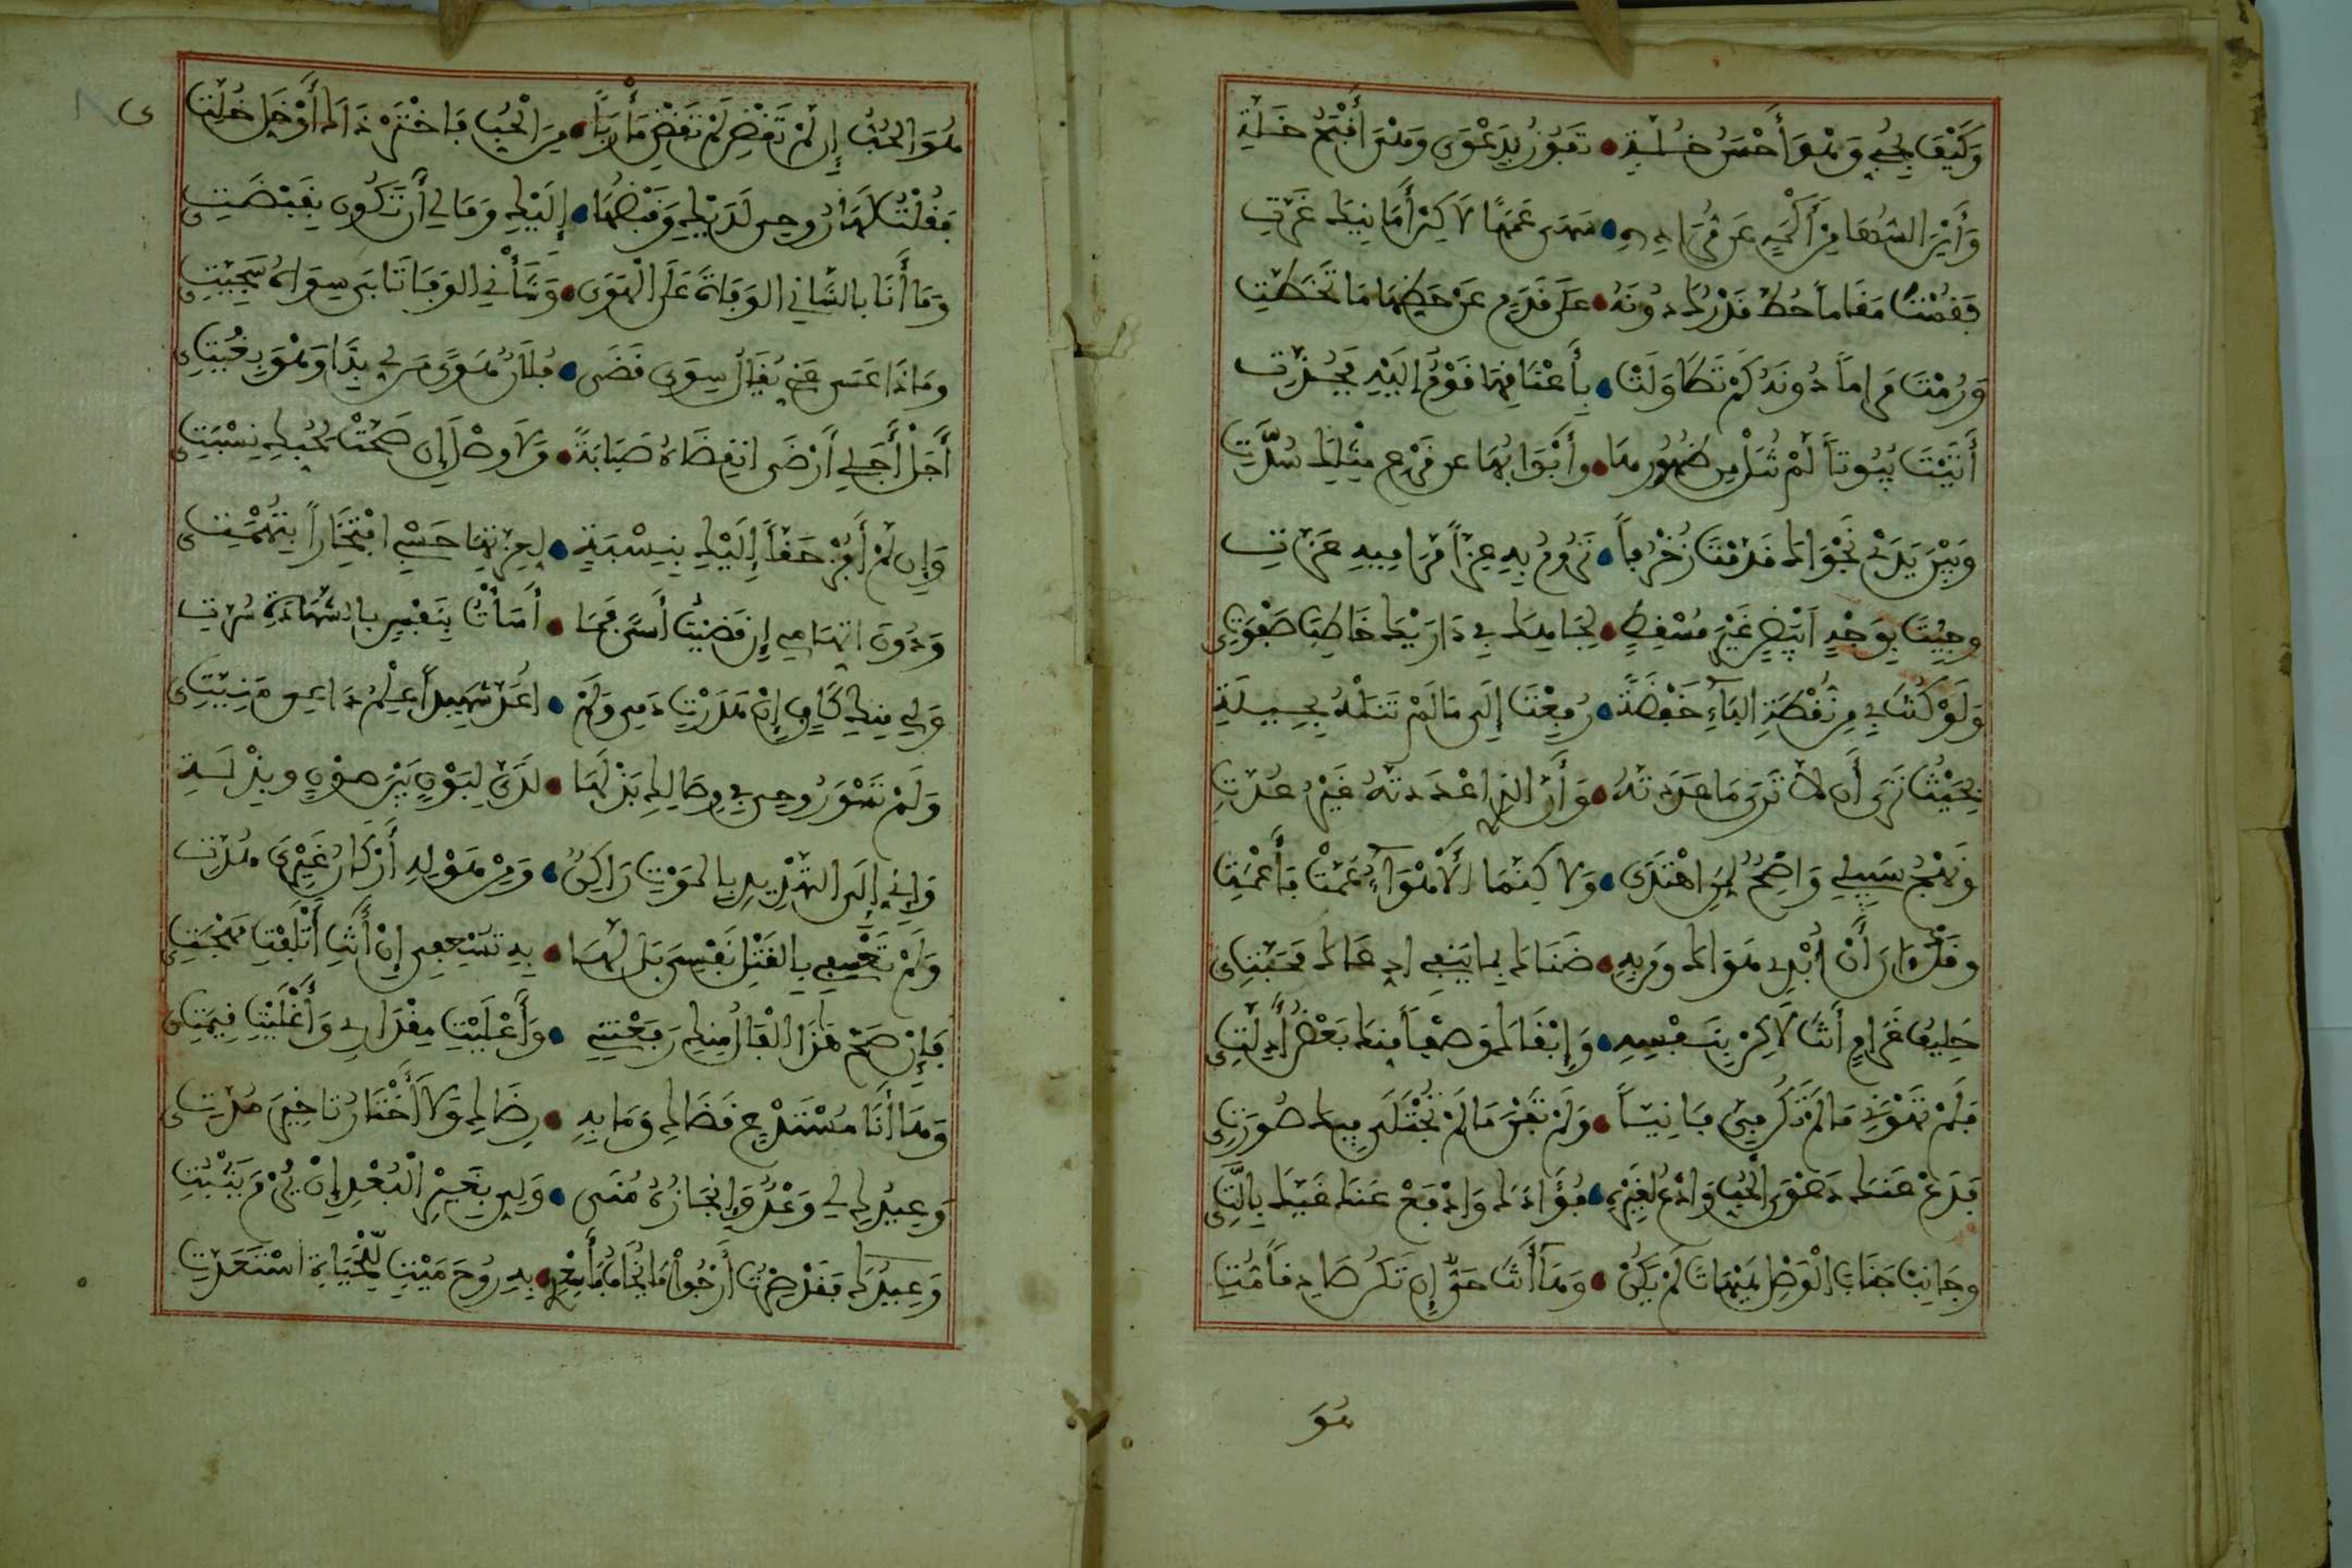 وَكَيْفَ بِحُبِّي وَهْوَ أَحْسَنُ خُلَّةٍ • تَفُوزُ بِدَعْوَى وَهْيَ أَقْبَحُ خَلَّةِ
وَأَيْنَ السُّهَا مِنْ أَكْمَهٍ عَنْ مُرَادِهِ • سَهَى عَمَهًا لَاكِنْ أَمَانِيكَ غَرَّتِ
فَقُمْتَ مَقَاماً حُطَّ قَدْرُكَ دُونَهُ • عَلَى قَدَمٍ عَنْ حَظِّهَا مَا تَخَطَّتِ
وَرُمْتَ مَرَاماً دُونَهُ كَمْ تَطَاوَلَتْ • بِأَعْنَاقِهَا قَوْمٌ إِلَيْهِ فَجُذَّتِ
أَتَيْتَ بُيُوتاً لَمْ تُنَلْ مِن ظُهُورِهَا • وأَبْوَابُهَا عن قَرْعِ مِثْلِكَ سُدَّتِ
وَبَيْنَ يَدَيْ نَجْوَاكَ قَدَّمْتَ زُخْرُفاً • تَرُومُ بِهِ عِزّاً مَرَامِيهِ عَزَّتِ
وجِئْتَ بِوَجْهٍ أَبْيَضٍ غَيْرَ مُسْقِطٍ • لِجَاهِكَ فِي دَارَيْكَ خَاطِبَ صَفْوَتِي
وَلَوْ كُنْتَ بِي مِنْ نُقْطَةِ البَاءِ خَفْضَةً • رُفِعْتَ إِلَى مَا لَمْ تَنَلْهُ بِحِيلَةِ
بِحَيْثُ تَرَى أَن لَا تَرَى مَا عَدَدتَهُ • وَأَنَّ الذِي اعْدَدتَهُ غَيْرُ عُدَّتِ
وَنَهْجُ سَبِيلِي وَاضِحٌ لِمَنِ اهْتَدَى • وَلَاكِنَّمَا الَاهْوَاءُ عَمَّتْ فَأَعْمَتِ
وقَدْ آنَ أَنْ أُبْدِي هَوَاكَ ومَن بِهِ • ضَنَاكَ بِمَا يَنْفِي ادِّعَاكَ مَحَبَّتِي
حَلِيفُ غَرَامٍ أَنْتَ لَاكِنْ بِنَفْسِهِ • وَإِبْقَاكَ وَصْفاً مِنْكَ بَعْضُ أَدِلَّتِي
فَلَمْ تَهْوَنِي مَا لَمْ تَكُن فِيَّ فَانِيّاً • وَلَمْ تَفْنَ مَا لَمْ تُجْتَلَى فِيكَ صُورَتِي
فَدَعْ عَنكَ دَعْوَى الْحُبِّ وَادْعُ لِغَيْرِهِ • فُؤَادَكَ وَادْفَعْ عَنكَ غَيَّكَ بِالَّتِي
وجَانِبْ جَنَابَ الْوَصْلِ هَيْهَاتَ لَمْ يَكُنْ • وَهَا أَنْتَ حَيٌّ إِن تَكُن صَادِقاً مُتِ
هُوَ
هُوَ الحُبُّ إِن لَمْ تَقْضِ لَمْ تَقْضِ مَأْرَباً • مِنَ الْحُبِّ فَاخْتَرْ ذَاكَ أَوْ خَلِّ خُلَّتِي
فَقُلْتُ لَهَا رُوحِي لَدَيْكِ وَقَبْضُهَا • إِلَيْكِ وَمَا لِي أَن تَكُونَ بِقَبْضَتِي
وَمَا أَنَا بِالشَّانِي الوَفَاةَ عَلَى الْهَوَى • وَشَأْنِي الوَفَا تَابَى سِوَاهُ سَجِيَّتِي
ومَاذَا عَسَى عَنِّي يُقَالُ سِوَى قَضَى • فُلَانٌ هَوًى مَن لِي بِذَا وَهْوَ بُغْيَتِي
أَجَلْ أَجَلِي أَرْضَى انقِضَاهُ صَبَابَةً • وَلَا وَصْلَ إِن صَحَّتْ لِحُبِّكِ نِسْبَتِي
وَإِن لَمْ أَفُزْ حَقّاً إِلَيْكِ بِنِسْبَةٍ • لِعِزَّتِهَا حَسْبِي افْتِخَاراً بِتُهْمَتِي
وَدُونَ اتِّهَامِي إِن قَضَيْتُ أَسًى فَمَا • أَسَأْتُ بِنَفْسٍ بِالشَّهَادَةِ سُرَّتِ
وَلِي مِنكِ كَافٍ إِنْ هَدَرْتِ دَمِي وَلَمْ • اعَدَّ شَهِيداً عِلْمُ دَاعِي مَنِيَّتِي
وَلَمْ تَسْوَ رُوحِي فِي وِصَالِكِ بَذْلَهَا • لَدَيَّ لِبَوْنٍ بَيْنَ صَوْنٍ وبِذْلَةِ
وَإِنِّي إِلَى التَّهْدِيدِ بِالمَوْتِ رَاكِنٌ • وَمِنْ هَوْلِهِ أَرْكَانُ غَيْرِيَ هُدَّتِ
وَلَمْ تَعْسِفِي بِالقَتْلِ نَفْسِيَ بَلْ لَهَا • بِهِ تُسْعِفِي إِنْ أَنْتِ أَتْلَفْتِ مُهْجَتِي
فَإِنْ صَحَّ هَذَا الْفَالُ مِنكِ رَفَعْتِنِي • وَأَعْلَيْتِ مِقْدَارِي وَأَغْلَيْتِ قِيمَتِي
وَهَا أَنَا مُسْتَدْعٍ قَضَاكِ وَمَا بِهِ • رِضَاكِ وَلَا أَخْتَارُ تَاخِيرَ مُدَّتِي
وَعِيدُكِ لِي وَعْدٌ وَإِنجَازُهُ مُنَى • وَلِيٍّ بِغَيْرِ الْبُعْدِ إِنْ يُرْمَ يَثْبُتِ
وَعِيدُكِ فَقَدْ صِرْتُ أَرْجُوا مَا يُخَافُ فَأَسْعِدِي بِهِ رُوحَ مَيْتٍ لِلْحَيَاةِ اسْتَعَدَّتِ